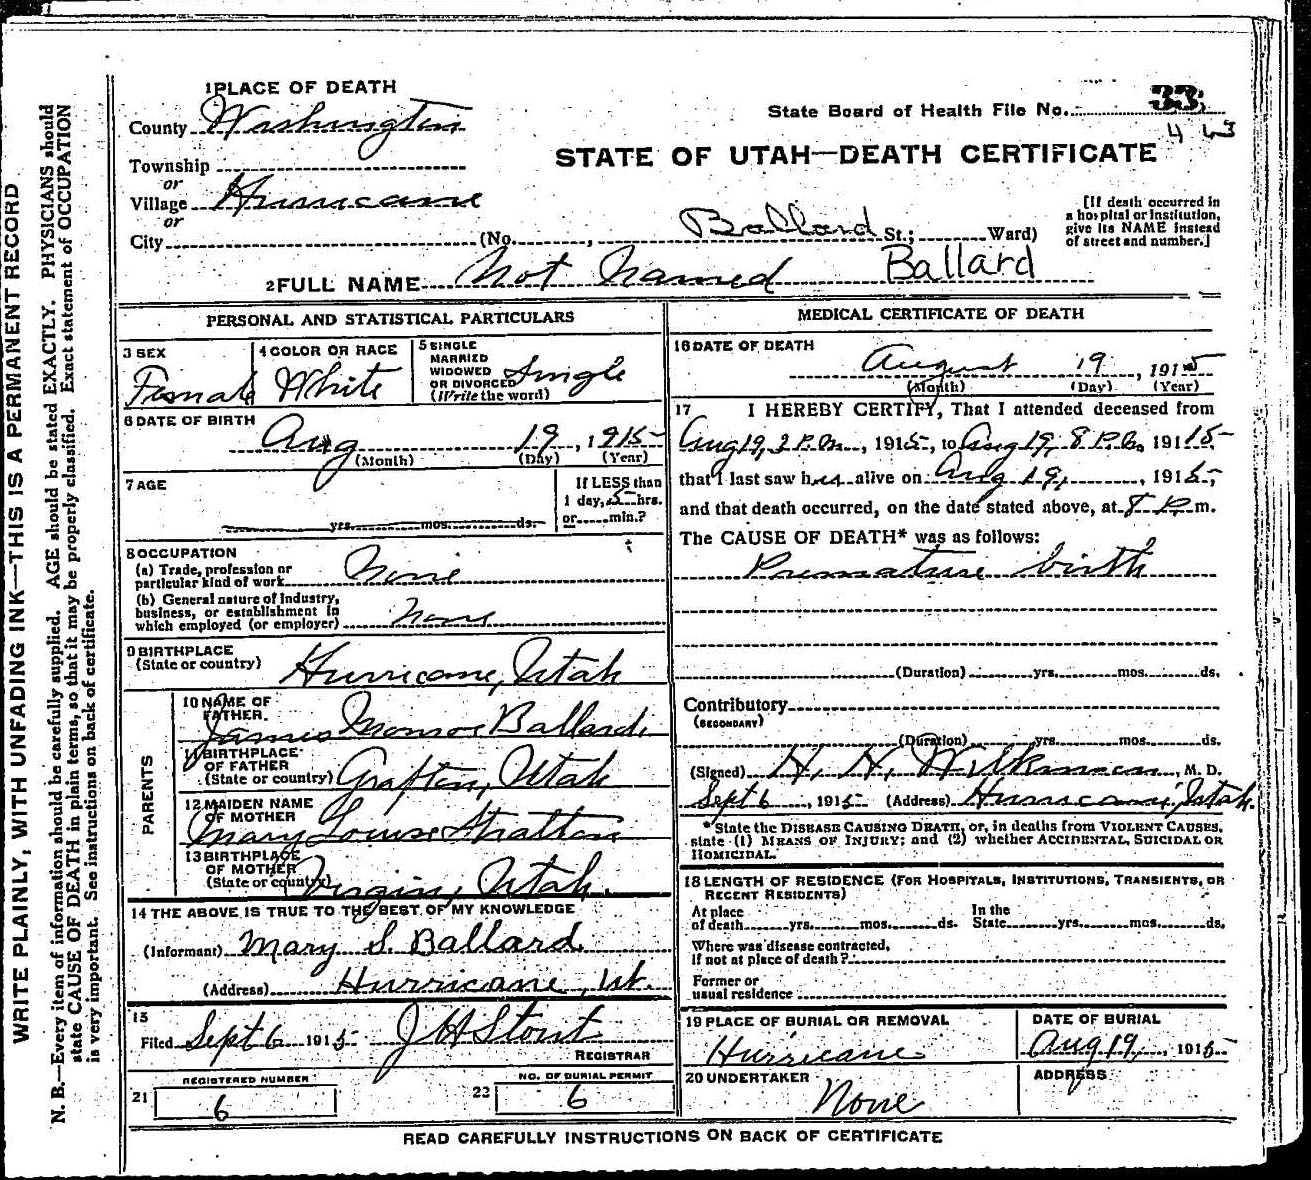 WRITE PLAINLY, WITH UNFADING INK—THIS IS A PERMANENT RECORD
N. B.—Every item of information should be carefully supplied. AGE should be stated EXACTLY. PHYSICIANS should
state CAUSE OF DEATH in plain terms, so that it may be properly classified. Exact statement of OCCUPATION
is very important. See instructions on back of certificate.
1 PLACE OF DEATH
State Board of Health File No. 33
443
County Washington
STATE OF UTAH—DEATH CERTIFICATE
Township
or
Village Hurricane
or
City (No. , Ballard St.; Ward)
[If death occurred in
a hospital or institution,
give its NAME instead
of street and number.]
2 FULL NAME Not Named Ballard
PERSONAL AND STATISTICAL PARTICULARS
3 SEX
Female
4 COLOR OR RACE
White
5 SINGLE
MARRIED
WIDOWED
OR DIVORCED
(Write the word)
Single
6 DATE OF BIRTH
Aug 19, 1915
(Month) (Day) (Year)
7 AGE
yrs. mos. ds.
If LESS than
1 day, 5 hrs.
or min.?
8 OCCUPATION
(a) Trade, profession or
particular kind of work None
(b) General nature of Industry,
business, or establishment in
which employed (or employer) none
9 BIRTHPLACE
(State or country) Hurricane, Utah
PARENTS
10 NAME OF
FATHER
James Monroe Ballard,
11 BIRTHPLACE
OF FATHER
(State or country) Grafton, Utah
12 MAIDEN NAME
OF MOTHER
Mary Louise Stratton
13 BIRTHPLACE
OF MOTHER
(State or country) Virgin, Utah.
14 THE ABOVE IS TRUE TO THE BEST OF MY KNOWLEDGE
(Informant) Mary S. Ballard
(Address) Hurricane, Ut.
15
Filed Sept 6 1915 J H Stout
REGISTRAR
21 REGISTERED NUMBER
6
22 NO. OF BURIAL PERMIT
6
MEDICAL CERTIFICATE OF DEATH
16 DATE OF DEATH
August 19, 1915
(Month) (Day) (Year)
17 I HEREBY CERTIFY, That I attended deceased from
Aug 19, 3 P.M., 1915, to Aug 19, 8 P.M. 1915
that I last saw her alive on Aug 19, 1915,
and that death occurred, on the date stated above, at 8 P.m.
The CAUSE OF DEATH* was as follows:
Premature birth
(Duration) yrs. mos. ds.
Contributory
(SECONDARY)
(Duration) yrs. mos. ds.
(Signed) H. H. Wilkinson, M. D.
Sept 6, 1915 (Address) Hurricane, Utah.
*State the DISEASE CAUSING DEATH, or, in deaths from VIOLENT CAUSES,
state (1) MEANS OF INJURY; and (2) whether ACCIDENTAL, SUICIDAL OR
HOMICIDAL.
18 LENGTH OF RESIDENCE (FOR HOSPITALS, INSTITUTIONS, TRANSIENTS, OR
RECENT RESIDENTS)
At place
of death yrs. mos. ds.
In the
State yrs. mos. ds.
Where was disease contracted,
if not at place of death?
Former or
usual residence
19 PLACE OF BURIAL OR REMOVAL
Hurricane
DATE OF BURIAL
Aug 19, 1915
20 UNDERTAKER
None
ADDRESS
READ CAREFULLY INSTRUCTIONS ON BACK OF CERTIFICATE